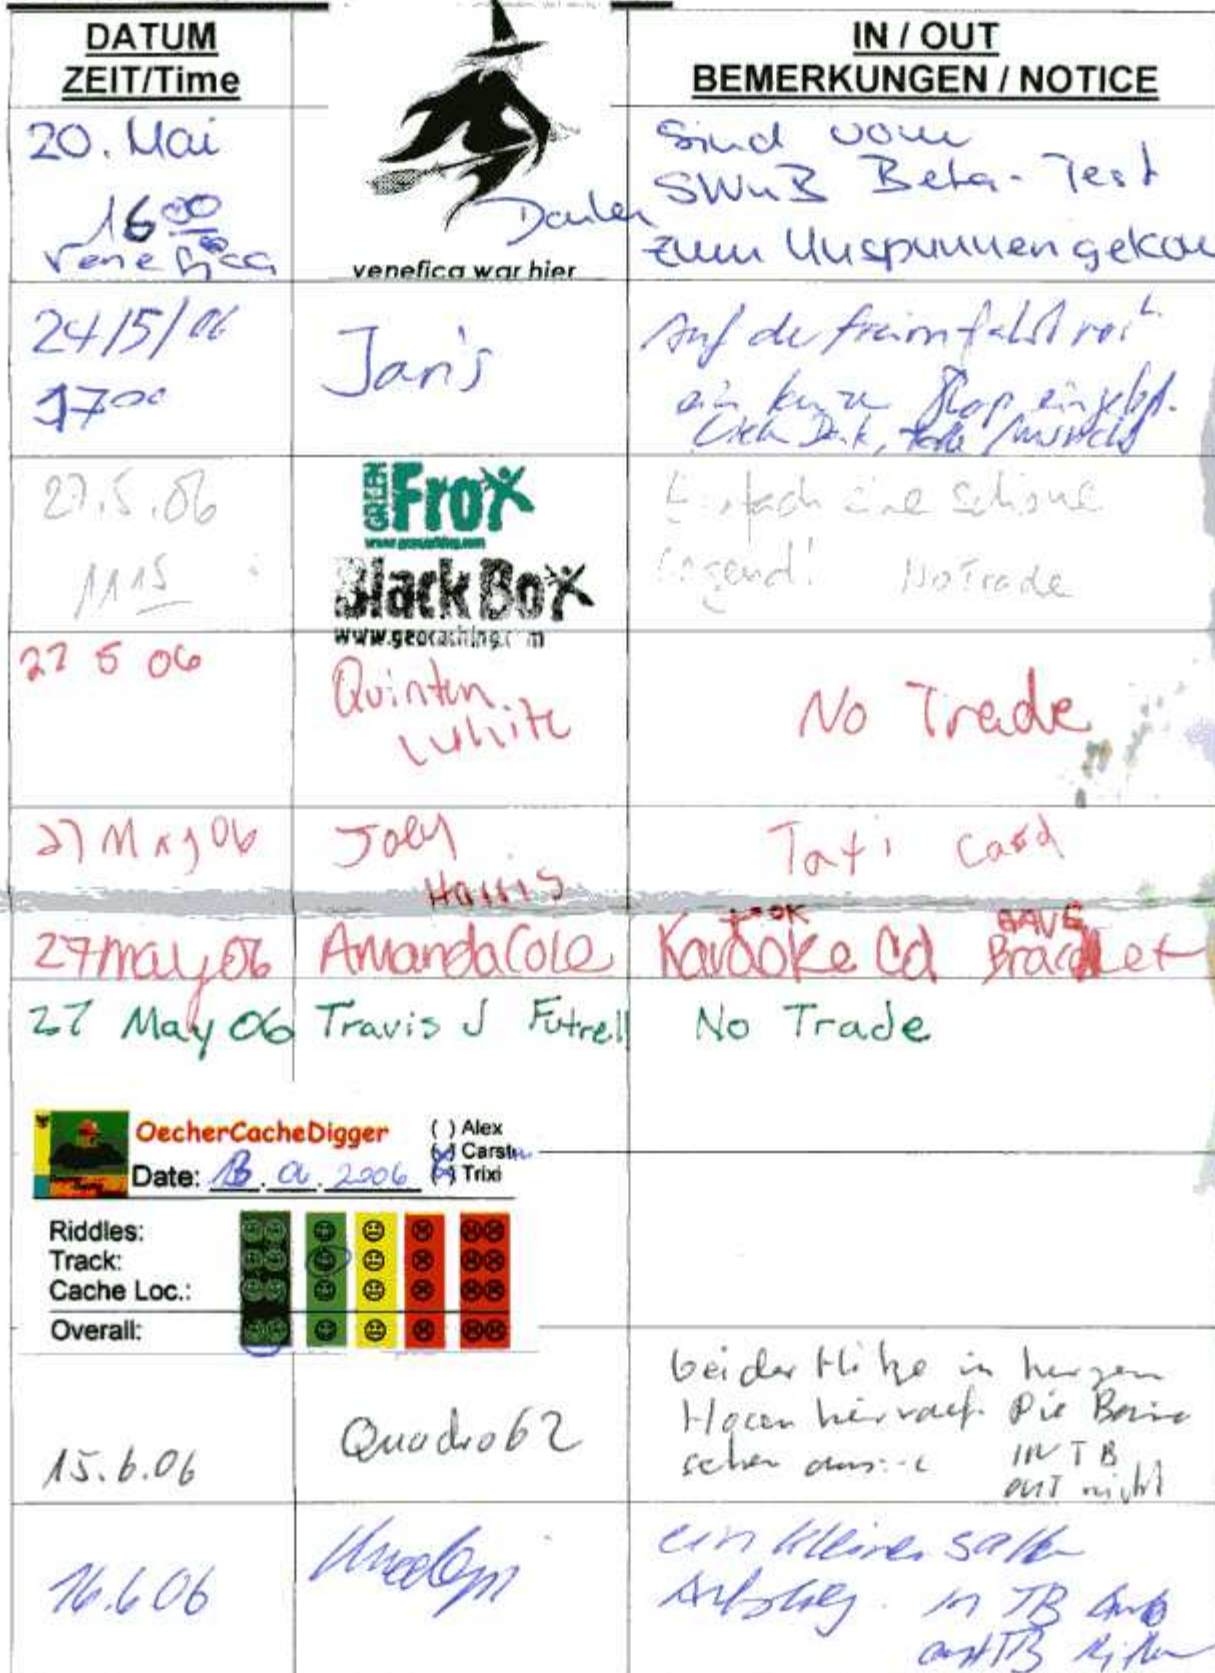 DATUM
ZEIT/Time
IN / OUT
BEMERKUNGEN / NOTICE
20. Mai
16 00
Venefica
venefica war hier
Sind vom
SWuB Beta-Test
zum Unspunnen
24/5/06
17 00
Jaris
Auf de
ein
27.5.06
11 15
GREEN
FroX
www.geocaching.com
Black BoX
www.geocaching.com
Einfach eine schöne
Gegend! No Trade
27 5 06
Quinten
White
No Trade
27 May 06
Joey
Harris
Card
27 may 06
Amanda Cole
took GAVE
Karaoke Cd Bracelet
27 May 06
Travis J Futrell
No Trade
OecherCacheDigger
Date: 13.06.2006
( ) Alex
(x) Carsten
(x) Trixi
Riddles:
Track:
Cache Loc.:
Overall:
15.6.06
Quadro62
bei der Hitze in kurzen
Hosen hierrauf. Die Beine
sehen
IN TB
OUT nicht
16.6.06
ein kleiner
in TB
out TB